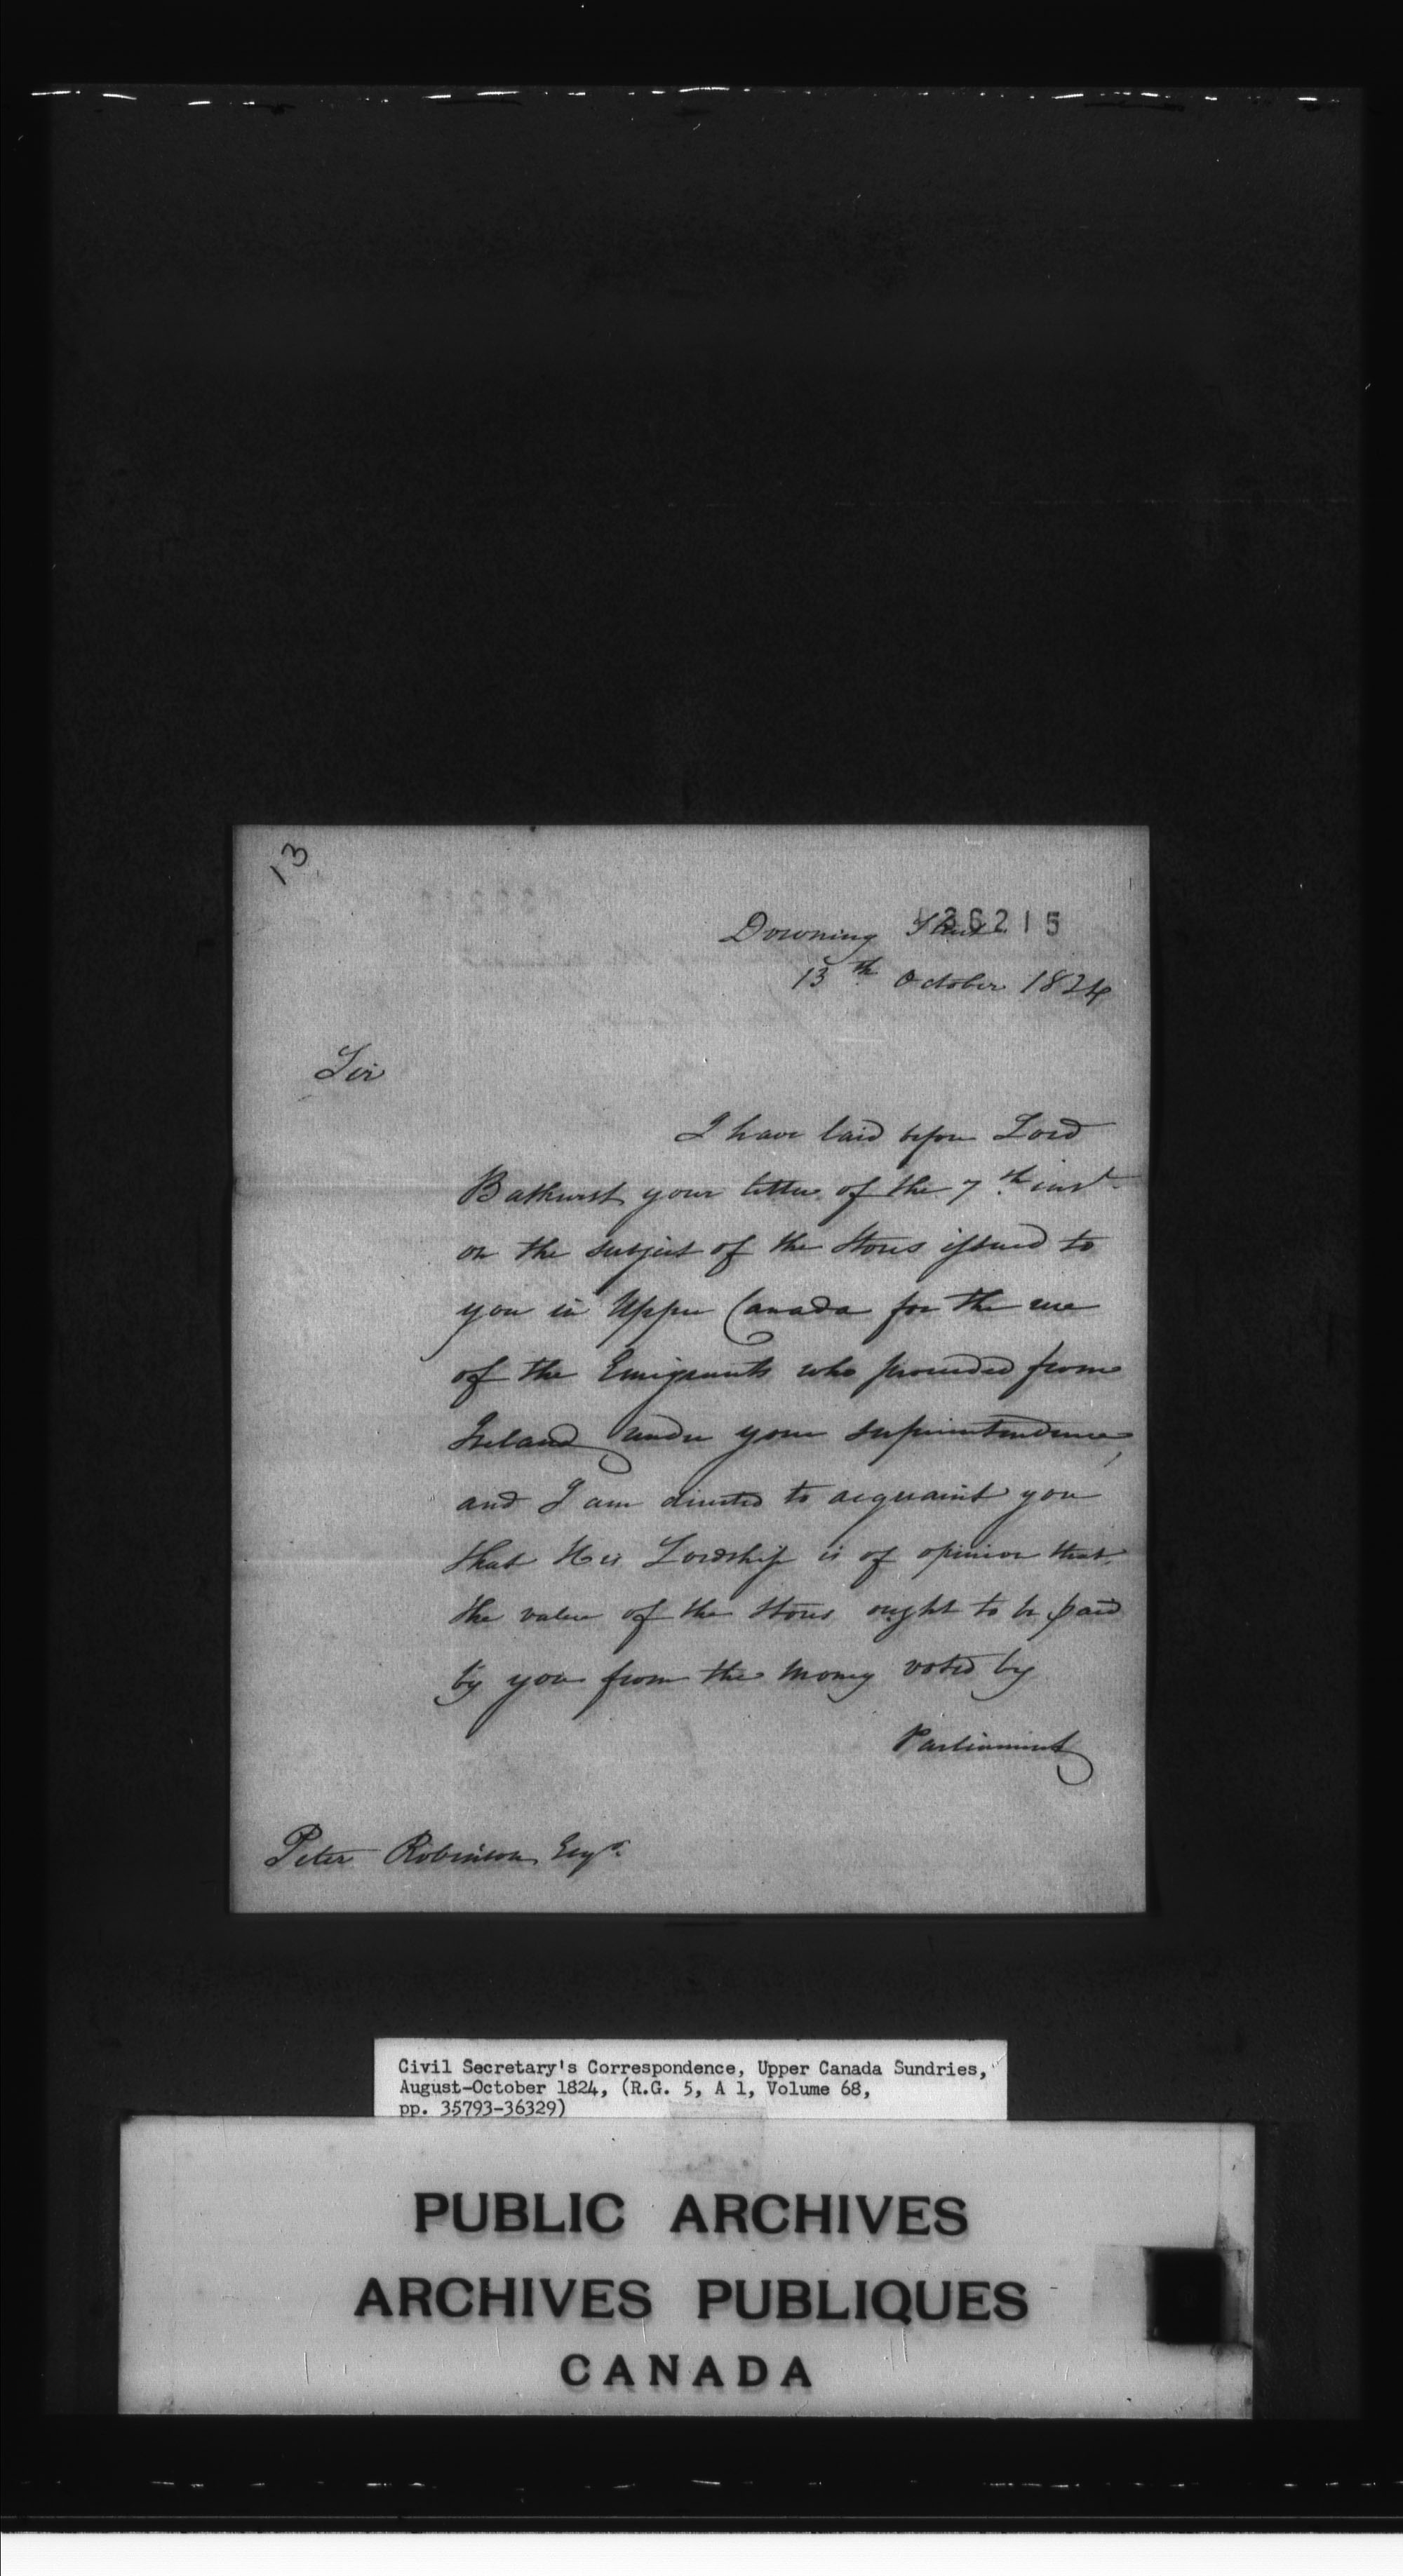 13
36215
Downing Street
13th October 1824
Sir
I have laid before Lord
Bathurst your letter of the 7th inst
on the subject of the Stores issued to
you in Upper Canada for the use
of the Emigrants who proceeded from
Ireland under your superintendence,
and I am directed to acquaint you
that His Lordship is of opinion that
the value of the Stores ought to be paid
by you from the money voted by
Parliament
Peter Robinson Esqr.
Civil Secretary's Correspondence, Upper Canada Sundries,
August-October 1824, (R.G. 5, A 1, Volume 68,
pp. 35793-36329)
PUBLIC ARCHIVES
ARCHIVES PUBLIQUES
CANADA